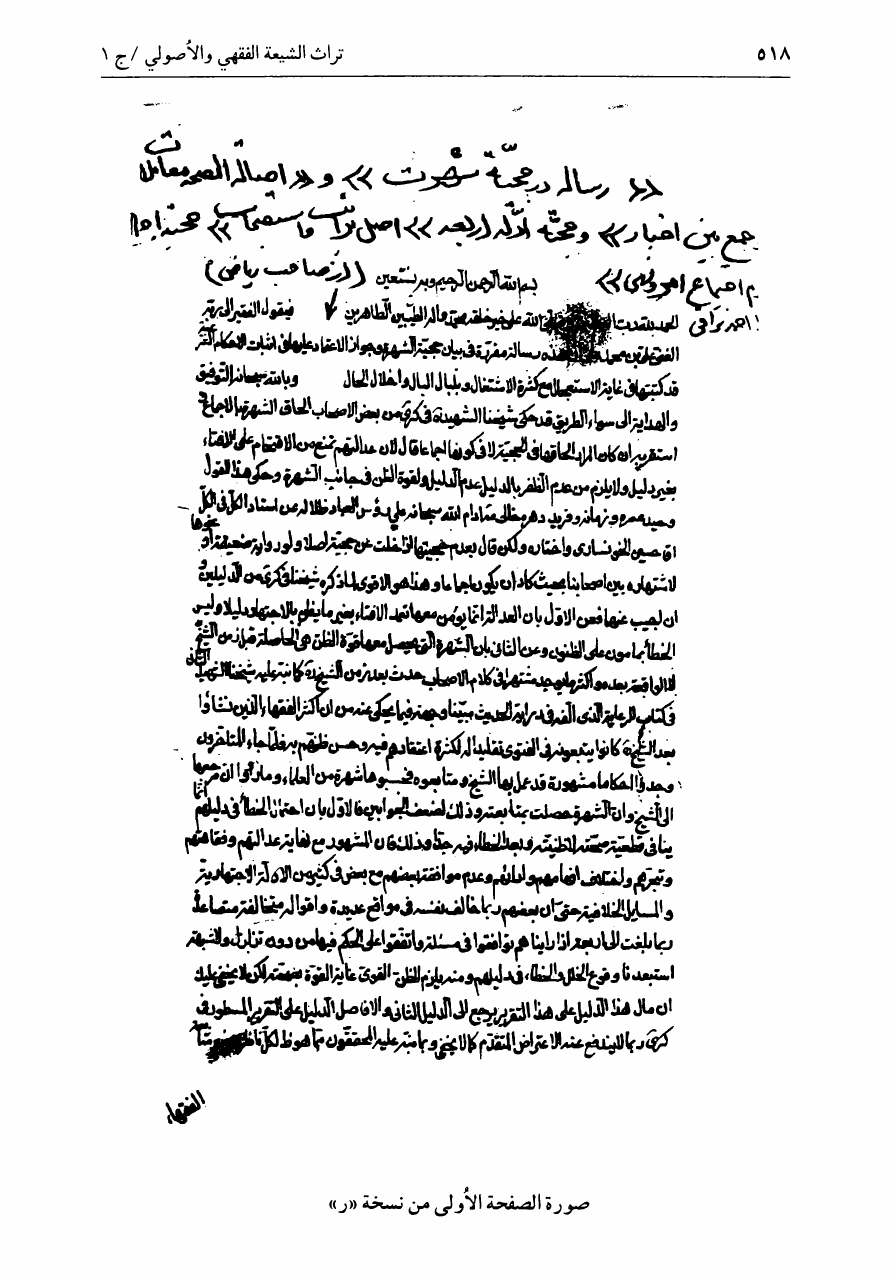 ٥١٨ تراث الشيعة الفقهي والأُصولي /ج ١
(( رساله در حجيّة شهرت )) و (( اصالة الصحه معاملات
جمع بين اخبار )) و حجيّة ادلّه اربعه )) اصل برائت استصحاب )) حجية
اجتماع امر و نهى )) بسم الله الرحمن الرحيم وبه نستعين ((از صاحب رياض))
احمد نراقى الله على خير خلقه محمد واله الطيبين الطاهرين فيقول الفقير الى ربه
الغنى هذه رسالة مفردة في بيان حجية الشهرة وجواز الاعتماد عليها في اثبات الاحكام
قد كتبتها في غاية الاستعجال مع كثرة الاشتغال وبلبال البال واخلال الحال وبالله سبحانه التوفيق
والهداية الى سواء الطريق قد حكى شيخنا الشهيد في كرى من بعض الاصحاب الحاق الشهرة بالاجماع
استقربه ان كان المراد الحاقها في الحجية لا في كونها اجماعا قال لان عدالتهم تمنع من الاقتحام على الافتاء
بغير دليل ولا يلزم من عدم الظفر بالدليل عدم الدليل ولقوة الظن في جانب الشهرة وحكى هذا القول
وحيد عصره و فريد دهره خالى ادام الله سبحانه على رؤس العباد ظلاله عن استاد الكل في الكل
اقا حسين الخونسارى واختاره ولكن قال بعدم حجيتها اذا خلت عن حجية اصلا ولو رواية ضعيفة او نحوها
لاشتهاره بين اصحابنا بحيث كاد ان يكون اجماعا وهذا هو الاقوى لما ذكره شيخنا في كرى من الدليلين و
ان اجيب عنهما فعن الاول بان العدالة انما يؤمن معها تعمد الافتاء بغير ما يظن بالاجتهاد دليلا وليس
الخطأ بمامون على الظنون وعن الثانى بان الشهرة التى يحصل معها قوة الظن هى الحاصلة قبل زمن الشيخ
لا الواقعة بعده واكثر ما يوجد مشتهرا في كلام الاصحاب حدث بعد زمن الشيخ كما نبه عليه شيخنا الشهيد الثانى
في كتاب الرعاية الذى الفه في دراية الحديث مبينا وجهه فيما يحكى عنه من ان اكثر الفقهاء الذين نشاؤا
بعد الشيخ كانوا يتبعونه في الفتوى تقليدا له لكثرة اعتقادهم فيه وحسن ظنهم به فلما جاء المتاخرون
وجدوا احكاما مشهورة قد عمل بها الشيخ ومتابعوه فحسبوها شهرة من العلماء وما دروا ان مرجعها
الى الشيخ وان الشهرة انما حصلت بمتابعته وذلك لضعف الجوابين فالاول بان احتمال الخطأ في دليلهم
ينافى قطعية صحته لا ظنيته وبعد الخطاء فيه جدا وذلك فان المشهور مع نهاية عدالتهم وفقاهتهم
وتبحرهم واختلاف افهامهم وارائهم وعدم موافقة بعضهم مع بعض في كثير من الادلة الاجتهادية
والمسايل الخلافية حتى ان بعضهم ربما خالف نفسه في مواضع عديدة واقواله متخالفة متصاعدة
ربما بلغت الى اربعة اذا راينا هم توافقوا في مسئلة واتفقوا على الحكم فيها من دون تزلزل ولا شبهة
استبعدنا وقوع الخلل والخطاء في دليلهم ومنه يلزم الظن القوى غاية القوة بصحته لكن لا يخفى عليك
ان مال هذا الدليل على هذا التقرير يرجع الى الدليل الثانى والا فاصل الدليل على التقرير المسطور في
كرى ربما لا يندفع عنه الاعتراض المتقدم كما لا يخفى وما نبه عليه المحققون مما هو ظ لكل
الفقهاء
صورة الصفحة الأُولى من نسخة «ر»